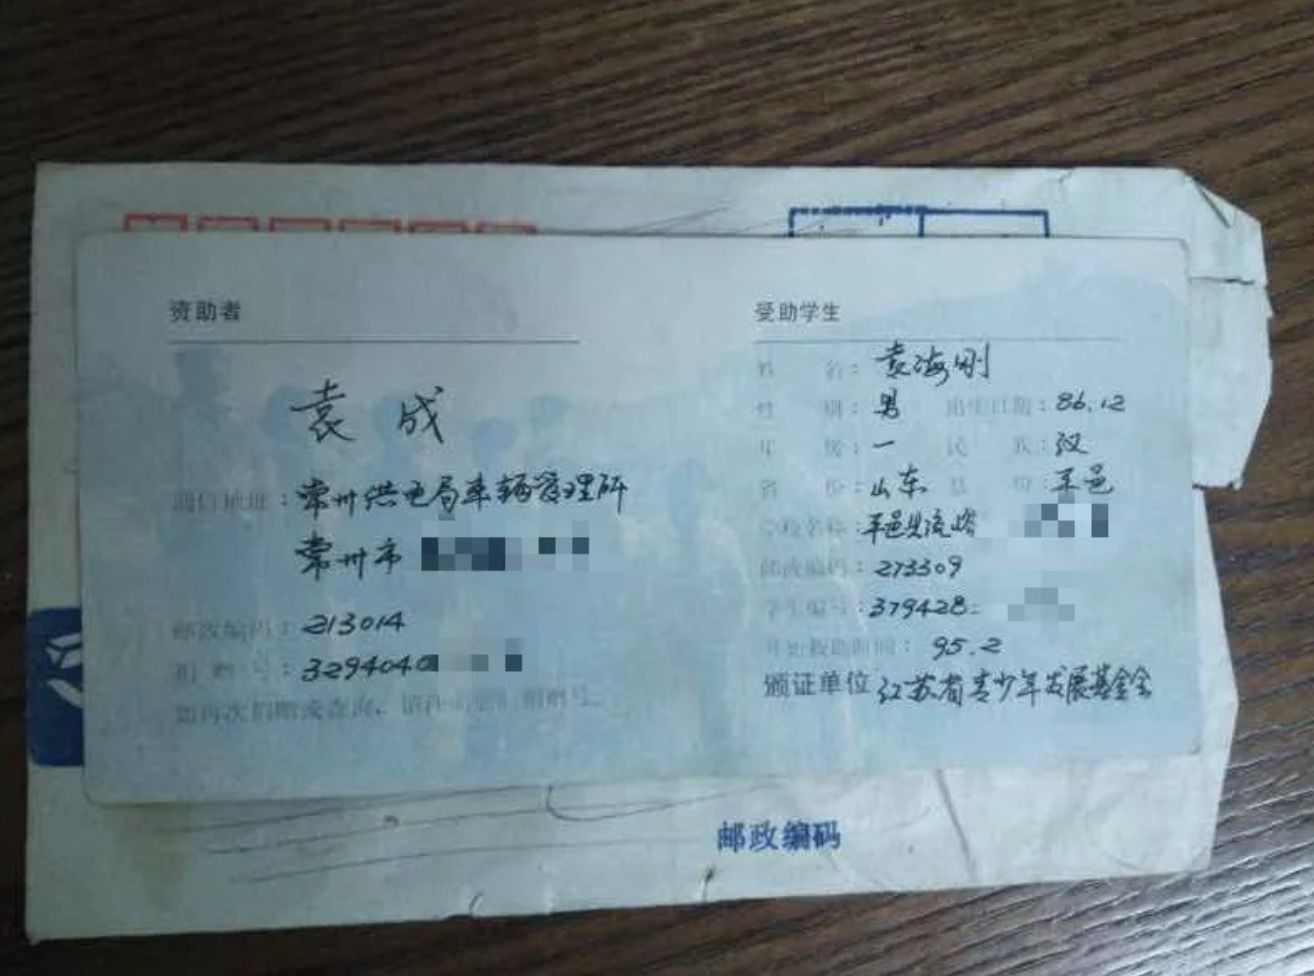 资助者
袁成
通信地址：常州供电局车辆管理所
常州市
邮政编码：213014
捐赠号：3294040
如再次捐赠或查询，请注明此捐赠号。
受助学生
姓名：袁海刚
性别：男 出生日期：86.12
年级：一 民族：汉
省份：山东 县份：平邑
学校名称：平邑县流峪
邮政编码：273309
学生编号：379428
开始救助时间：95.2
颁证单位 江苏省青少年发展基金会
邮政编码